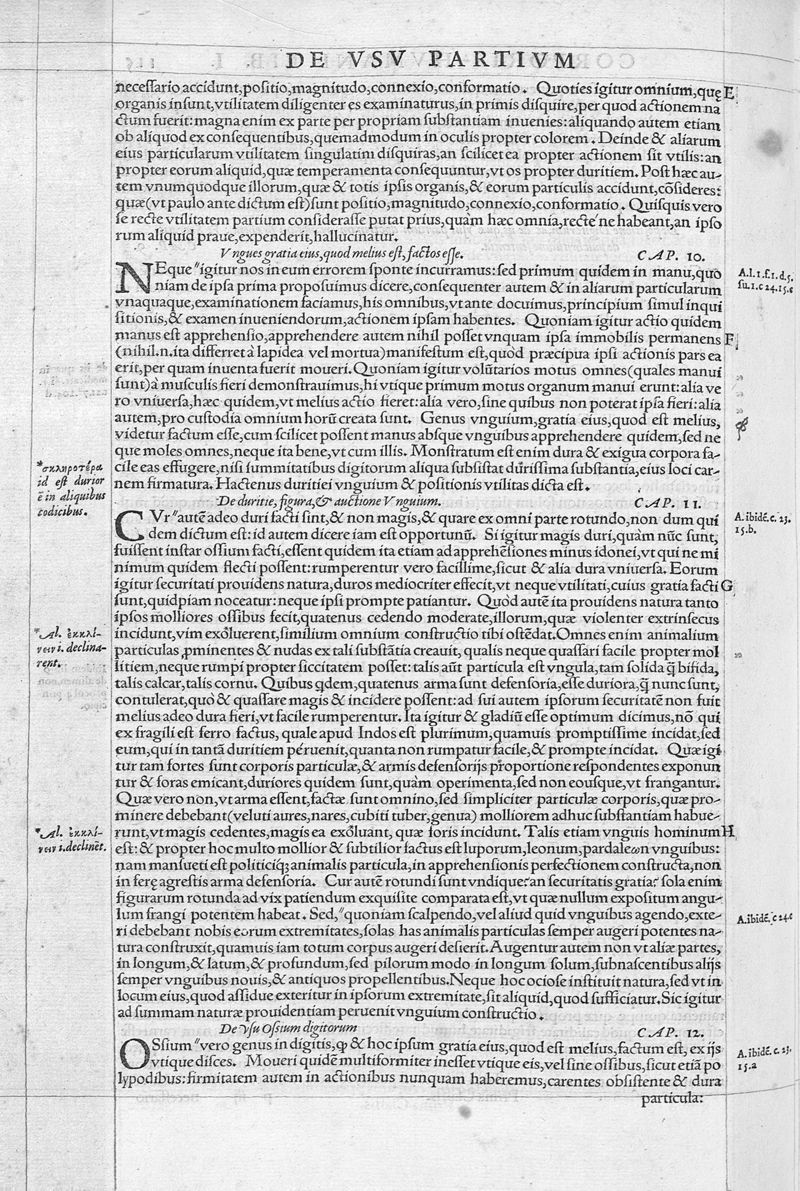 DE VSV PARTIVM
neceſſario accidunt, poſitio, magnitudo, connexio, conformatio. Quoties igitur omnium, quę E
organis inſunt, vtilitatem diligenter es examinaturus, in primis diſquire, per quod actionem na
ctum fuerit: magna enim ex parte per propriam ſubſtantiam inuenies: aliquando autem etiam
ob aliquod ex conſequentibus, quemadmodum in oculis propter colorem. Deinde & aliarum
eius particularum vtilitatem ſingulatim diſquiras, an ſcilicet ea propter actionem ſit vtilis: an
propter eorum aliquid, quæ temperamenta conſequuntur, vt os propter duritiem. Poſt hæc au-
tem vnumquodque illorum, quæ & totis ipſis organis, & eorum particulis accidunt, cõſideres:
quæ (vt paulo ante dictum eſt) ſunt poſitio, magnitudo, connexio, conformatio. Quiſquis vero
ſe recte vtilitatem partium conſideraſſe putat prius, quàm hæc omnia, recte ne habeant, an ipſo
rum aliquid praue, expenderit, hallucinatur.
Vngues gratia eius, quod melius eſt, factos eſſe. CAP. 10.
NEque "igitur nos in eum errorem ſponte incurramus: ſed primum quidem in manu, quo
niam de ipſa prima propoſuimus dicere, conſequenter autem & in aliarum particularum
vnaquaque, examinationem faciamus, his omnibus, vt ante docuimus, principium ſimul inqui
ſitionis, & examen inueniendorum, actionem ipſam habentes. Quoniam igitur actio quidem
manus eſt apprehenſio, apprehendere autem nihil poſſet vnquam ipſa immobilis permanens F
(nihil .n. ita differret à lapidea vel mortua) manifeſtum eſt, quòd præcipua ipſi actionis pars ea
erit, per quam inuenta fuerit moueri. Quoniam igitur volũtarios motus omnes (quales manui
ſunt) à muſculis fieri demonſtrauimus, hi vtique primum motus organum manui erunt: alia ve
ro vniuerſa, hæc quidem, vt melius actio fieret: alia vero, ſine quibus non poterat ipſa fieri: alia
autem, pro cuſtodia omnium horũ creata ſunt. Genus vnguium, gratia eius, quod eſt melius,
videtur factum eſſe, cum ſcilicet poſſent manus abſque vnguibus apprehendere quidem, ſed ne
que moles omnes, neque ita bene, vt cum illis. Monſtratum eſt enim dura & exigua corpora fa-
cile eas effugere, niſi ſummitatibus digitorum aliqua ſubſiſtat duriſſima ſubſtantia, eius loci car-
nem firmatura. Hactenus duritiei vnguium & poſitionis vtilitas dicta eſt.
De duritie, figura, & auctione Vnguium. CAP. 11.
CVr "autẽ adeo duri facti ſint, & non magis, & quare ex omni parte rotundo, non dum qui
dem dictum eſt: id autem dicere iam eſt opportunũ. Si igitur magis duri, quàm nũc ſunt,
fuiſſent inſtar oſſium facti, eſſent quidem ita etiam ad apprehẽſiones minus idonei, vt qui ne mi
nimum quidem flecti poſſent: rumperentur vero facillime, ſicut & alia dura vniuerſa. Eorum
igitur ſecuritati prouidens natura, duros mediocriter effecit, vt neque vtilitati, cuius gratia facti G
ſunt, quidpiam noceatur: neque ipſi prompte patiantur. Quòd autẽ ita prouidens natura tanto
ipſos molliores oſſibus fecit, quatenus cedendo moderate, illorum, quæ violenter extrinſecus
incidunt, vim exoluerent, ſimilium omnium conſtructio tibi oſtẽdat. Omnes enim animalium
particulas ꝓminentes & nudas ex tali ſubſtãtia creauit, qualis neque quaſſari facile propter mol
litiem, neque rumpi propter ſiccitatem poſſet: talis aũt particula eſt vngula, tam ſolida q̃ bifida,
talis calcar, talis cornu. Quibus qdem, quatenus arma ſunt defenſoria, eſſe duriora, q̃ nunc ſunt,
contulerat, quo & quaſſare magis & incidere poſſent: ad ſui autem ipſorum ſecuritatẽ non fuit
melius adeo dura fieri, vt facile rumperentur. Ita igitur & gladiũ eſſe optimum dicimus, nõ qui
ex fragili eſt ferro factus, quale apud Indos eſt plurimum, quamuis promptiſſime incidat, ſed
eum, qui in tantã duritiem peruenit, quanta non rumpatur facile, & prompte incidat. Quæ igi
tur tam fortes ſunt corporis particulæ, & armis defenſorijs proportione reſpondentes exponun
tur & foras emicant, duriores quidem ſunt, quàm operimenta, ſed non eouſque, vt frangantur.
Quæ vero non, vt arma eſſent, factæ ſunt omnino, ſed ſimpliciter particulæ corporis, quæ pro-
minere debebant (veluti aures, nares, cubiti tuber, genua) molliorem adhuc ſubſtantiam habue-
runt, vt magis cedentes, magis ea exoluant, quæ foris incidunt. Talis etiam vnguis hominum H
eſt: & propter hoc multo mollior & ſubtilior factus eſt luporum, leonum, pardaleωn vnguibus:
nam manſueti eſt politiciq; animalis particula, in apprehenſionis perfectionem conſtructa, non
in ferę agreſtis arma defenſoria. Cur autẽ rotundi ſunt vndique? an ſecuritatis gratia? ſola enim
figurarum rotunda ad vix patiendum exquiſite comparata eſt, vt quæ nullum expoſitum angu-
lum frangi potentem habeat. Sed, "quoniam ſcalpendo, vel aliud quid vnguibus agendo, exte-
ri debebant nobis eorum extremitates, ſolas has animalis particulas ſemper augeri potentes na-
tura conſtruxit, quamuis iam totum corpus augeri deſierit. Augentur autem non vt aliæ partes,
in longum, & latum, & profundum, ſed pilorum modo in longum ſolum, ſubnaſcentibus alijs
ſemper vnguibus nouis, & antiquos propellentibus. Neque hoc ocioſe inſtituit natura, ſed vt in
locum eius, quod aſſidue exteritur in ipſorum extremitate, ſit aliquid, quod ſufficiatur. Sic igitur
ad ſummam naturæ prouidentiam peruenit vnguium conſtructio.
De vſu Oſsium digitorum CAP. 12.
OSſium "vero genus in digitis, ꝙ & hoc ipſum gratia eius, quod eſt melius, factum eſt, ex ijs
vtique diſces. Moueri quidẽ multiformiter ineſſet vtique eis, vel ſine oſſibus, ſicut etiã po
lypodibus: firmitatem autem in actionibus nunquam haberemus, carentes obſiſtente & dura
particula:
*σκληροτέρα
id eſt durior
ẽ in aliquibus
codicibus.
*Al. ἐκκλί-
νειν i. declina-
rent.
*Al. ἐκκλί-
νειν i. declinẽt.
A.l.1.f.1.d.5.
ſu.1.c 24.15.e
A. ibidẽ. c. 23.
15.b.
A. ibidẽ. c 24.e
A. ibidẽ. c. 23.
15.a